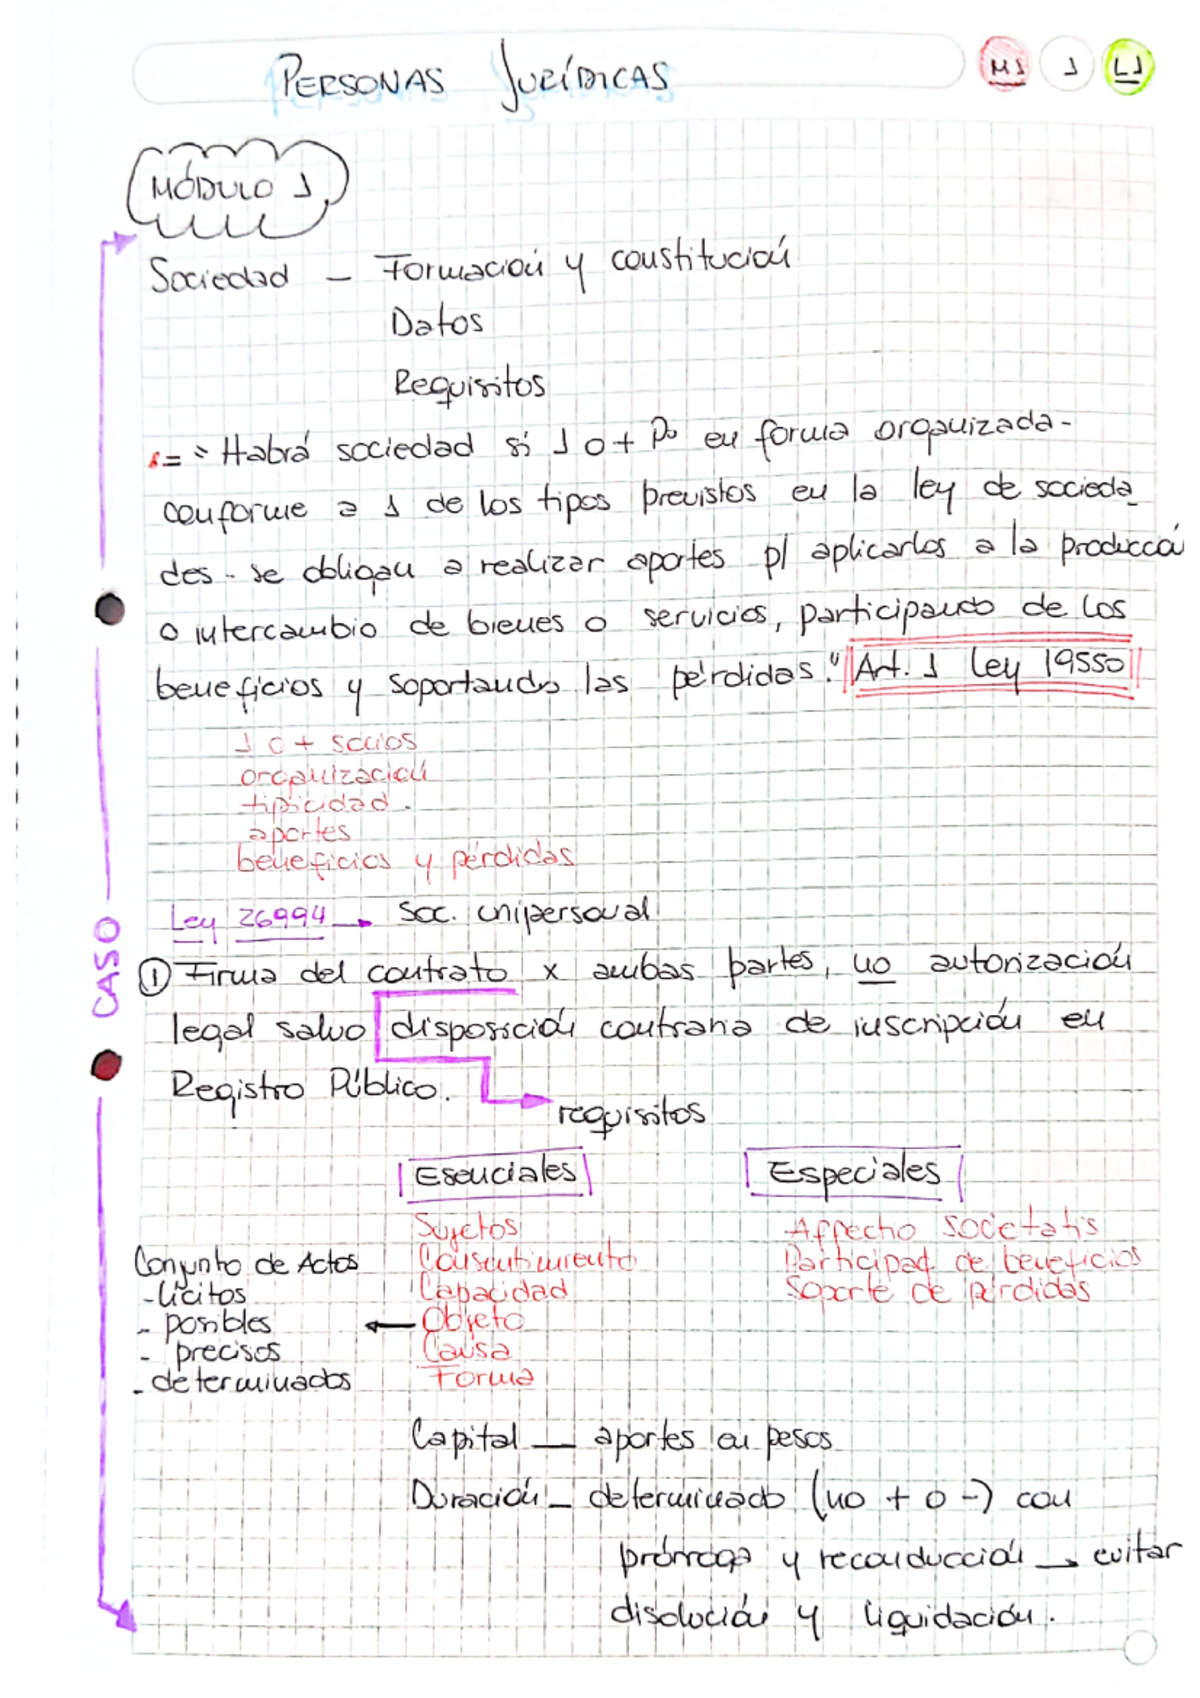 PERSONAS JURÍDICAS
M1 1 L1
MÓDULO 1
Sociedad - Formación y constitución
Datos
Requisitos
s= "Habrá sociedad si 1 o + Po en forma organizada -
conforme a 1 de los tipos previstos en la ley de socieda_
des - se obligan a realizar aportes p/ aplicarlos a la producció
o intercambio de bienes o servicios, participando de los
beneficios y soportando las pérdidas." Art. 1 Ley 19550
1 o + socios
organización
tipicidad.
aportes
beneficios y pérdidas
Ley 26994 → Soc. unipersonal
CASO
① Firma del contrato x ambas partes, no autorización
legal salvo disposición contraria de inscripción en
Registro Público.
requisitos
Esenciales Especiales
Sujetos Affecho societatis
Conjunto de Actos Consentimiento Participad de beneficios
-lícitos Capacidad Soporte de pérdidas
- posibles ← Objeto
- precisos Causa
- determinados Forma
Capital _ aportes en pesos
Duración _ determinado (no + o -) con
prórroga y reconducción → evitar
disolución y liquidación.